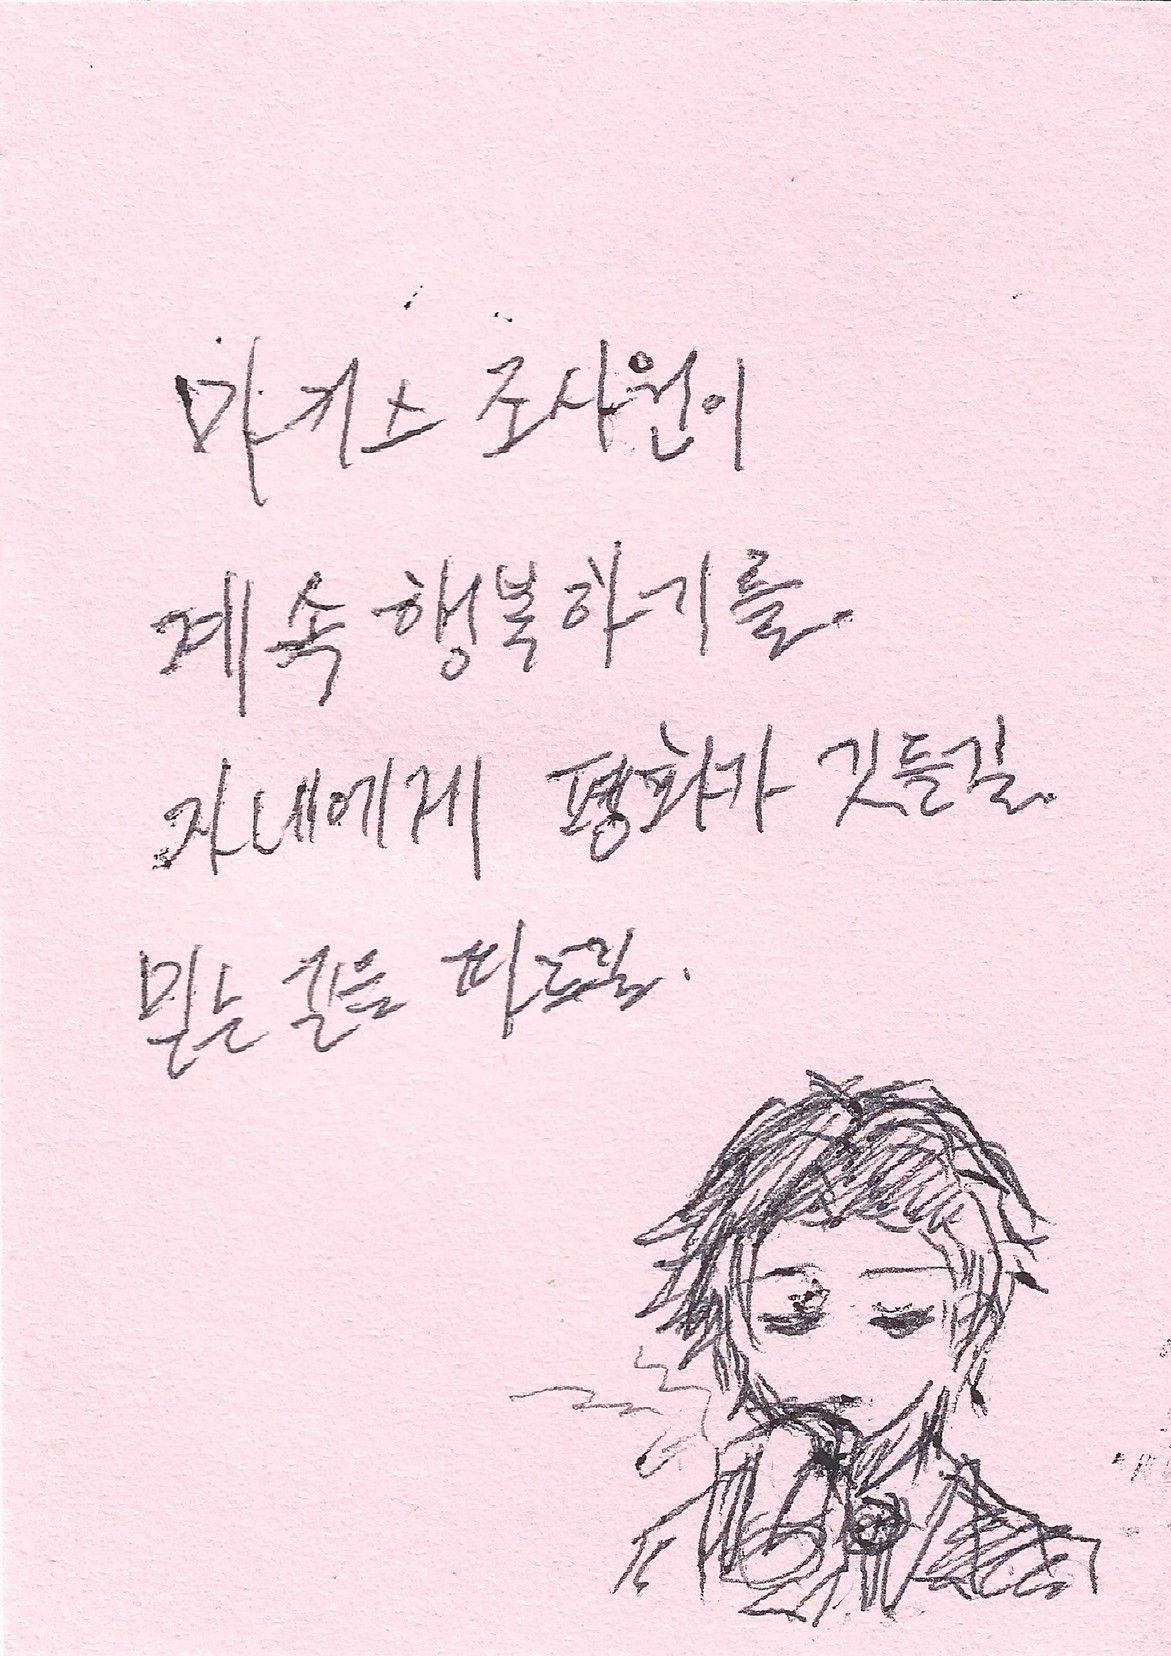 마키스 조사원이
계속 행복하기를.
자네에게 평화가 깃들길.
믿는 길을